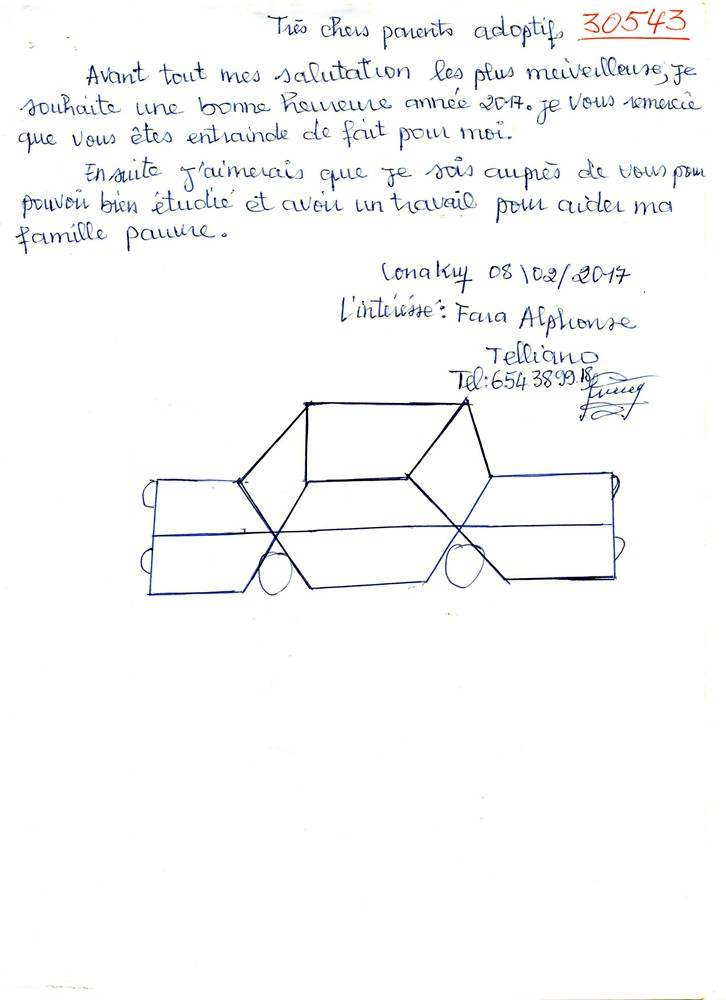 Très chers parents adoptifs 30543
Avant tout mes salutation les plus meiveilleuse, je
souhaite une bonne heureuse année 2017. je vous remercie
que vous êtes entrainde de fait pour moi.
Ensuite j'aimerais que je sois auprès de vous pour
pouvoir bien étudié et avoir un travail pour aider ma
famille pauvre.
Conakry 08\02/2017
L'intéressé: Fara Alphonse
Telliano
Tel: 654.38 99.18